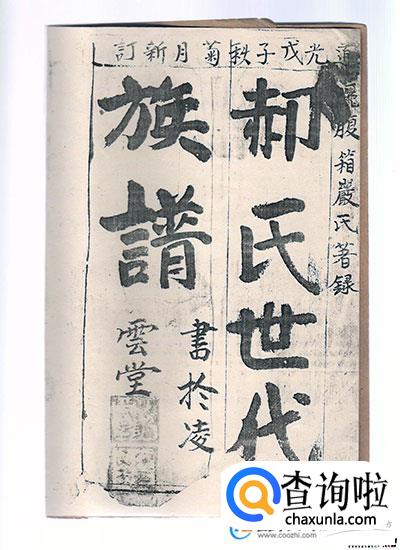 道光戊子秋菊月新訂
腹箱嚴氏著録
郝氏世代
族譜
書於凌
雲堂
查询啦
chaxunla.com